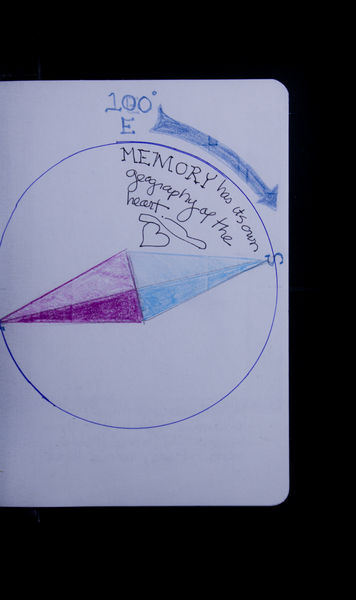 100°
E
MEMORY has its own
geography of the
heart.
S